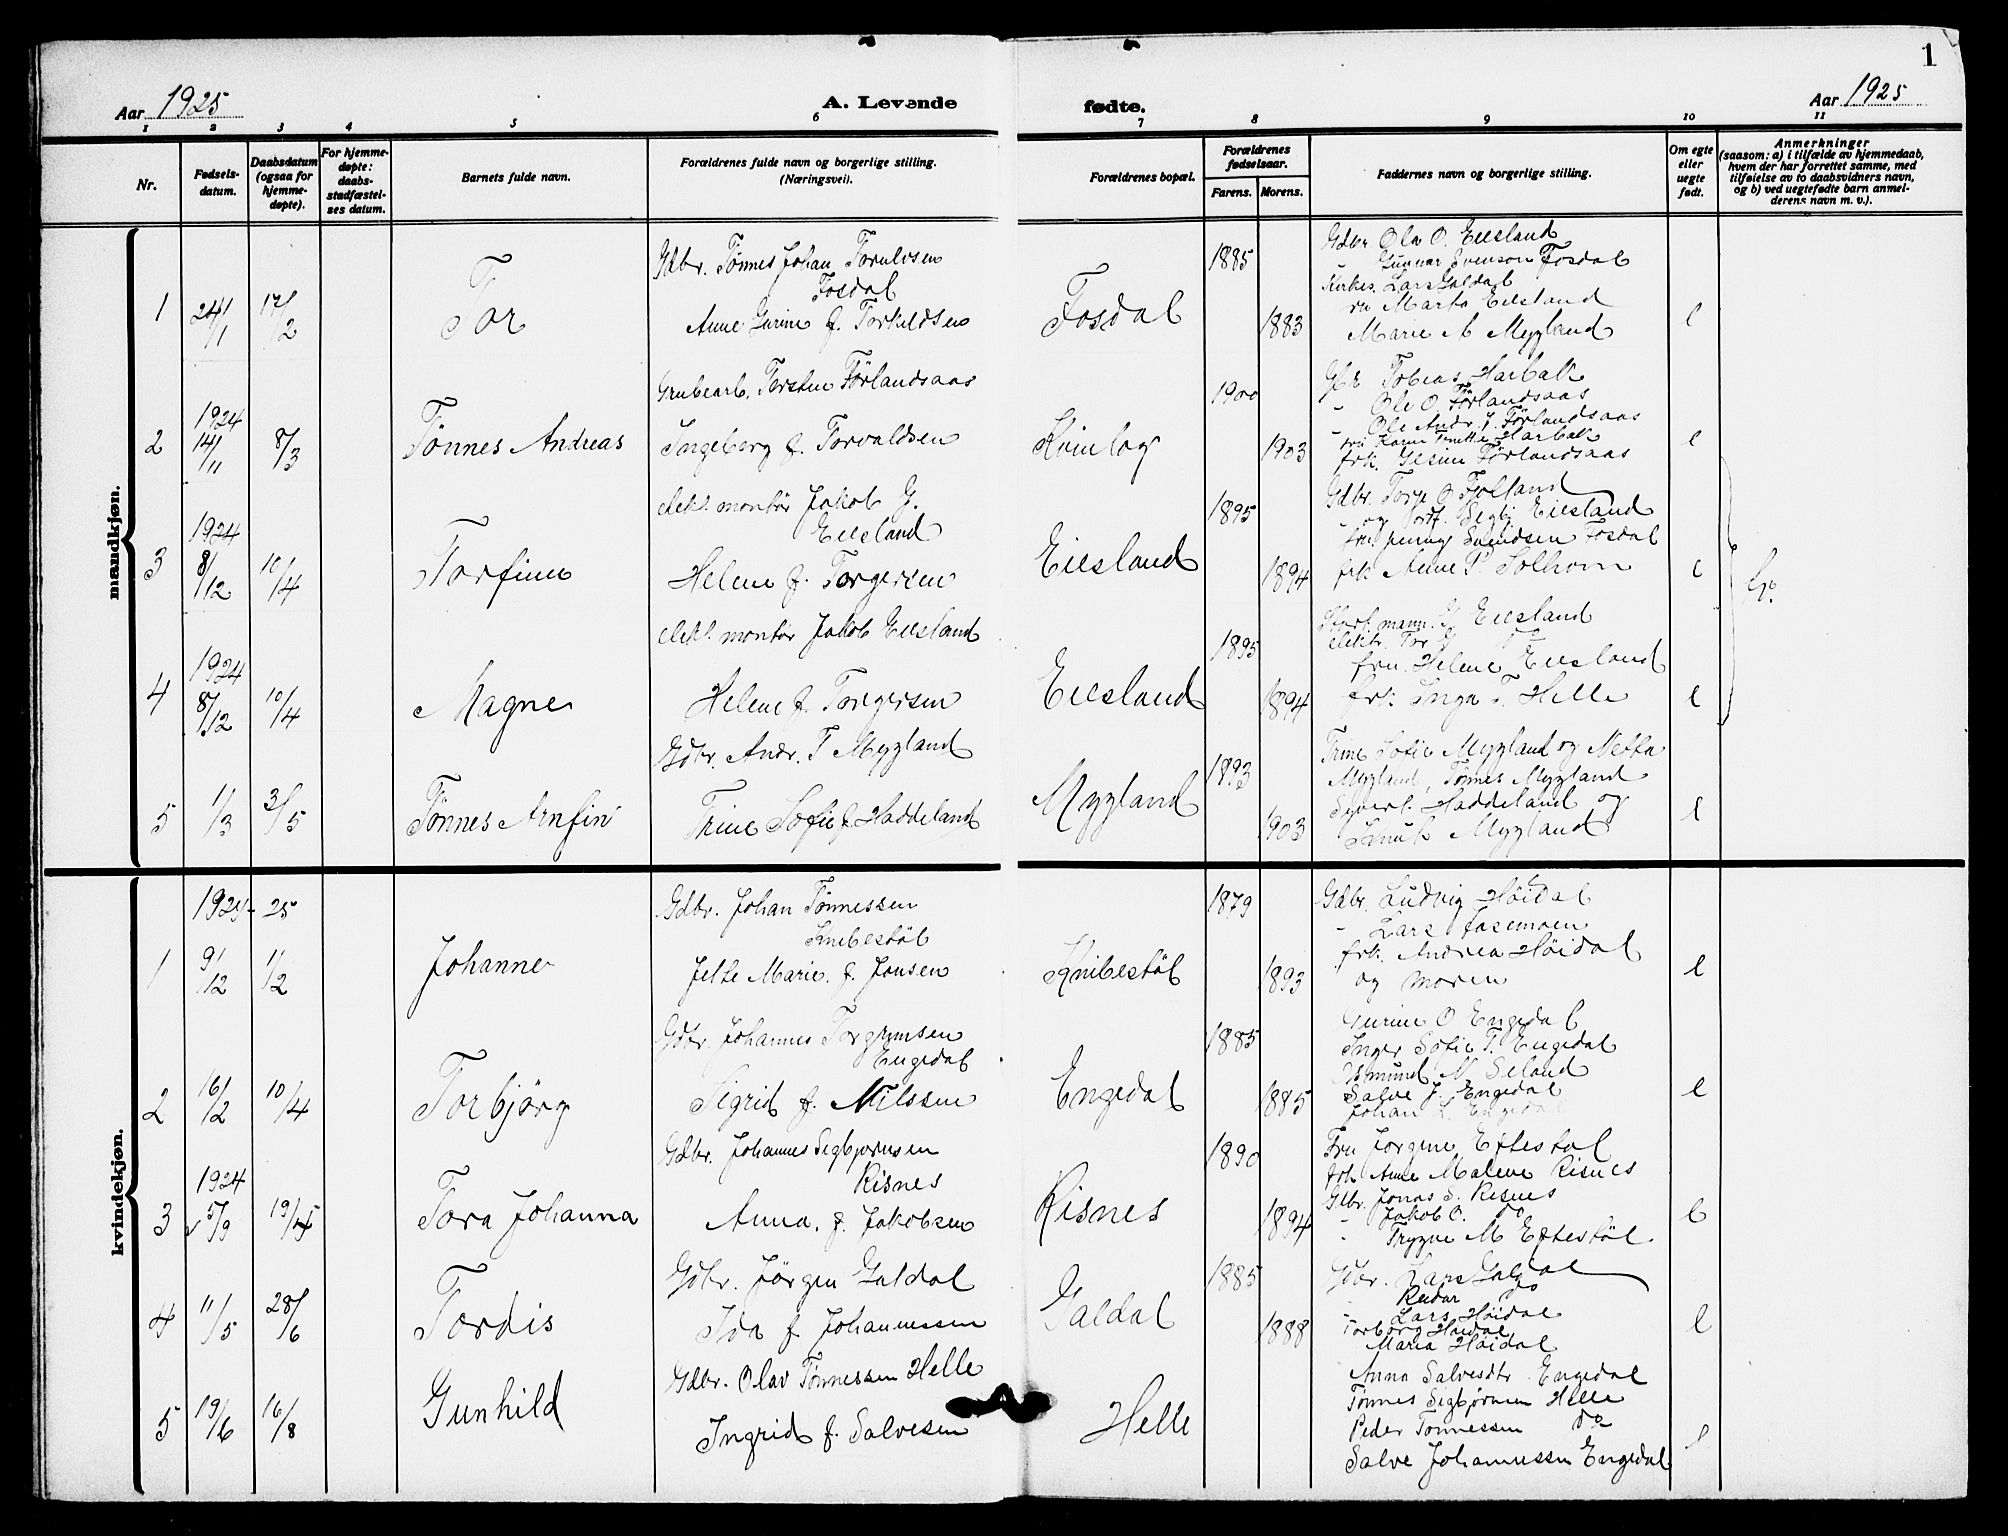 1
Aar 1925
A. Levende
fødte.
Aar 1925
1 2 3 4 5 6 7 8 9 10 11
Nr.
Fødsels-
datum.
Daabsdatum
(ogsaa for
hjemme-
døpte).
For hjemme-
døpte:
daabs-
stadfæstel-
ses datum.
Barnets fulde navn.
Forældrenes fulde navn og borgerlige stilling.
(Næringsvei).
Forældrenes bopæl.
Forældrenes
fødselsaar.
Farens. Morens.
Faddernes navn og borgerlige stilling.
Om egte
eller
uegte
født.
Anmerkninger
(saasom: a) i tilfælde av hjemmedaab,
hvem der har forrettet samme, med
tilføielse av to daabsvidners navn,
og b) ved uegtefødte barn anmel-
derens navn m. v.).
mandkjøn.
1
24/1
17/2
Tor
Gdbr. Tønnes Johan Torulvsen
Fosdal
Anne Gurine f. Torkildsen
Fosdal
1885
1883
Gdbr Ola O. Eiesland
" Gunnar Svenson Fosdal
Kirkes. Lars Galdal
fru Marta Eiesland
Marie M Mygland
e
2
1924
14/11
8/3
Tønnes Andreas
Grubearb. Torsten Førlandsaas
Ingeborg f. Torvaldsen
Kvinlog
1900
1903
Gbr Tobias Harbak
" Ole O Førlandsaas
" Ole Andr. J. Førlandsaas
fru Karen Harbak
frk. Gesine Førlandsaas
e
3
1924
8/12
10/4
Torfinn
elekt. montør Jakob G.
Eiesland
Helene f. Torgersen
Eiesland
1895
1894
Gdbr. Torje O Fjotland
" og Sigbj Eiesland
fru. Jenny Svendsen Fosdal
frk Anne P. Solhom
e
4
1924
8/12
10/4
Magne
elekt. montør Jakob Eiesland
Helene f. Torgersen
Eiesland
1895
1894
mann. G Eiesland
elektr. Tor G
fru. Helene Eiesland
frk Inga T. Helle
e
5
1/3
3/5
Tønnes Arnfin
Gdbr. Andr. T Mygland
Trine Sofie f. Haddeland
Mygland
1893
1903
Trine Sofie Mygland og Netta
Mygland, Tønnes Mygland
Syvert. Haddeland og
Knut Mygland
e
kvindekjøn.
1
1924 - 25
9/12
1/2
Johanne
Gdbr. Johan Tønnessen
Knibestøl
Jelte Marie. f. Jansen
Knibestøl
1879
1893
Gdbr. Ludvig Høidal
" Lars Fasemoen
frk. Andrea Høidal
og moren
e
2
16/2
10/4
Torbjørg
Gdbr. Johannes Torgrimsen
Engedal
Sigrid f. Nilssen
Engedal
1885
1885
Gurine O Engedal
Inger Sofie T. Engedal
Osmund N. Seland
Salve J. Engedal
Johan L. Engedal
e
3
1924
5/9
19/4
Tora Johanna
Gdbr. Johannes Sigbjørnsen
Risnes
Anna. f. Jakobsen
Risnes
1890
1894
Fru Jorgine Eftestøl
frk Anne Malene Risnes
Gdbr. Jonas S. Risnes
" Jakob O. do
" Trygve M Eftestøl
e
4
11/5
28/6
Tordis
Gdbr. Jørgen Galdal
Ida f. Johannessen
Galdal
1885
1888
Gdbr. Lars Galdal
" Reidar do
" Lars Høidal
Torborg Høidal
Maria Høidal
e
5
19/6
16/8
Gunhild
Gdbr. Olav Tønnessen Helle
Ingrid f. Salvesen
Helle
Anna Salvesdtr. Engedal
Tønnes Sigbjørnsen Helle
Peder Tønnessen do
Salve Johannessen Engedal
e